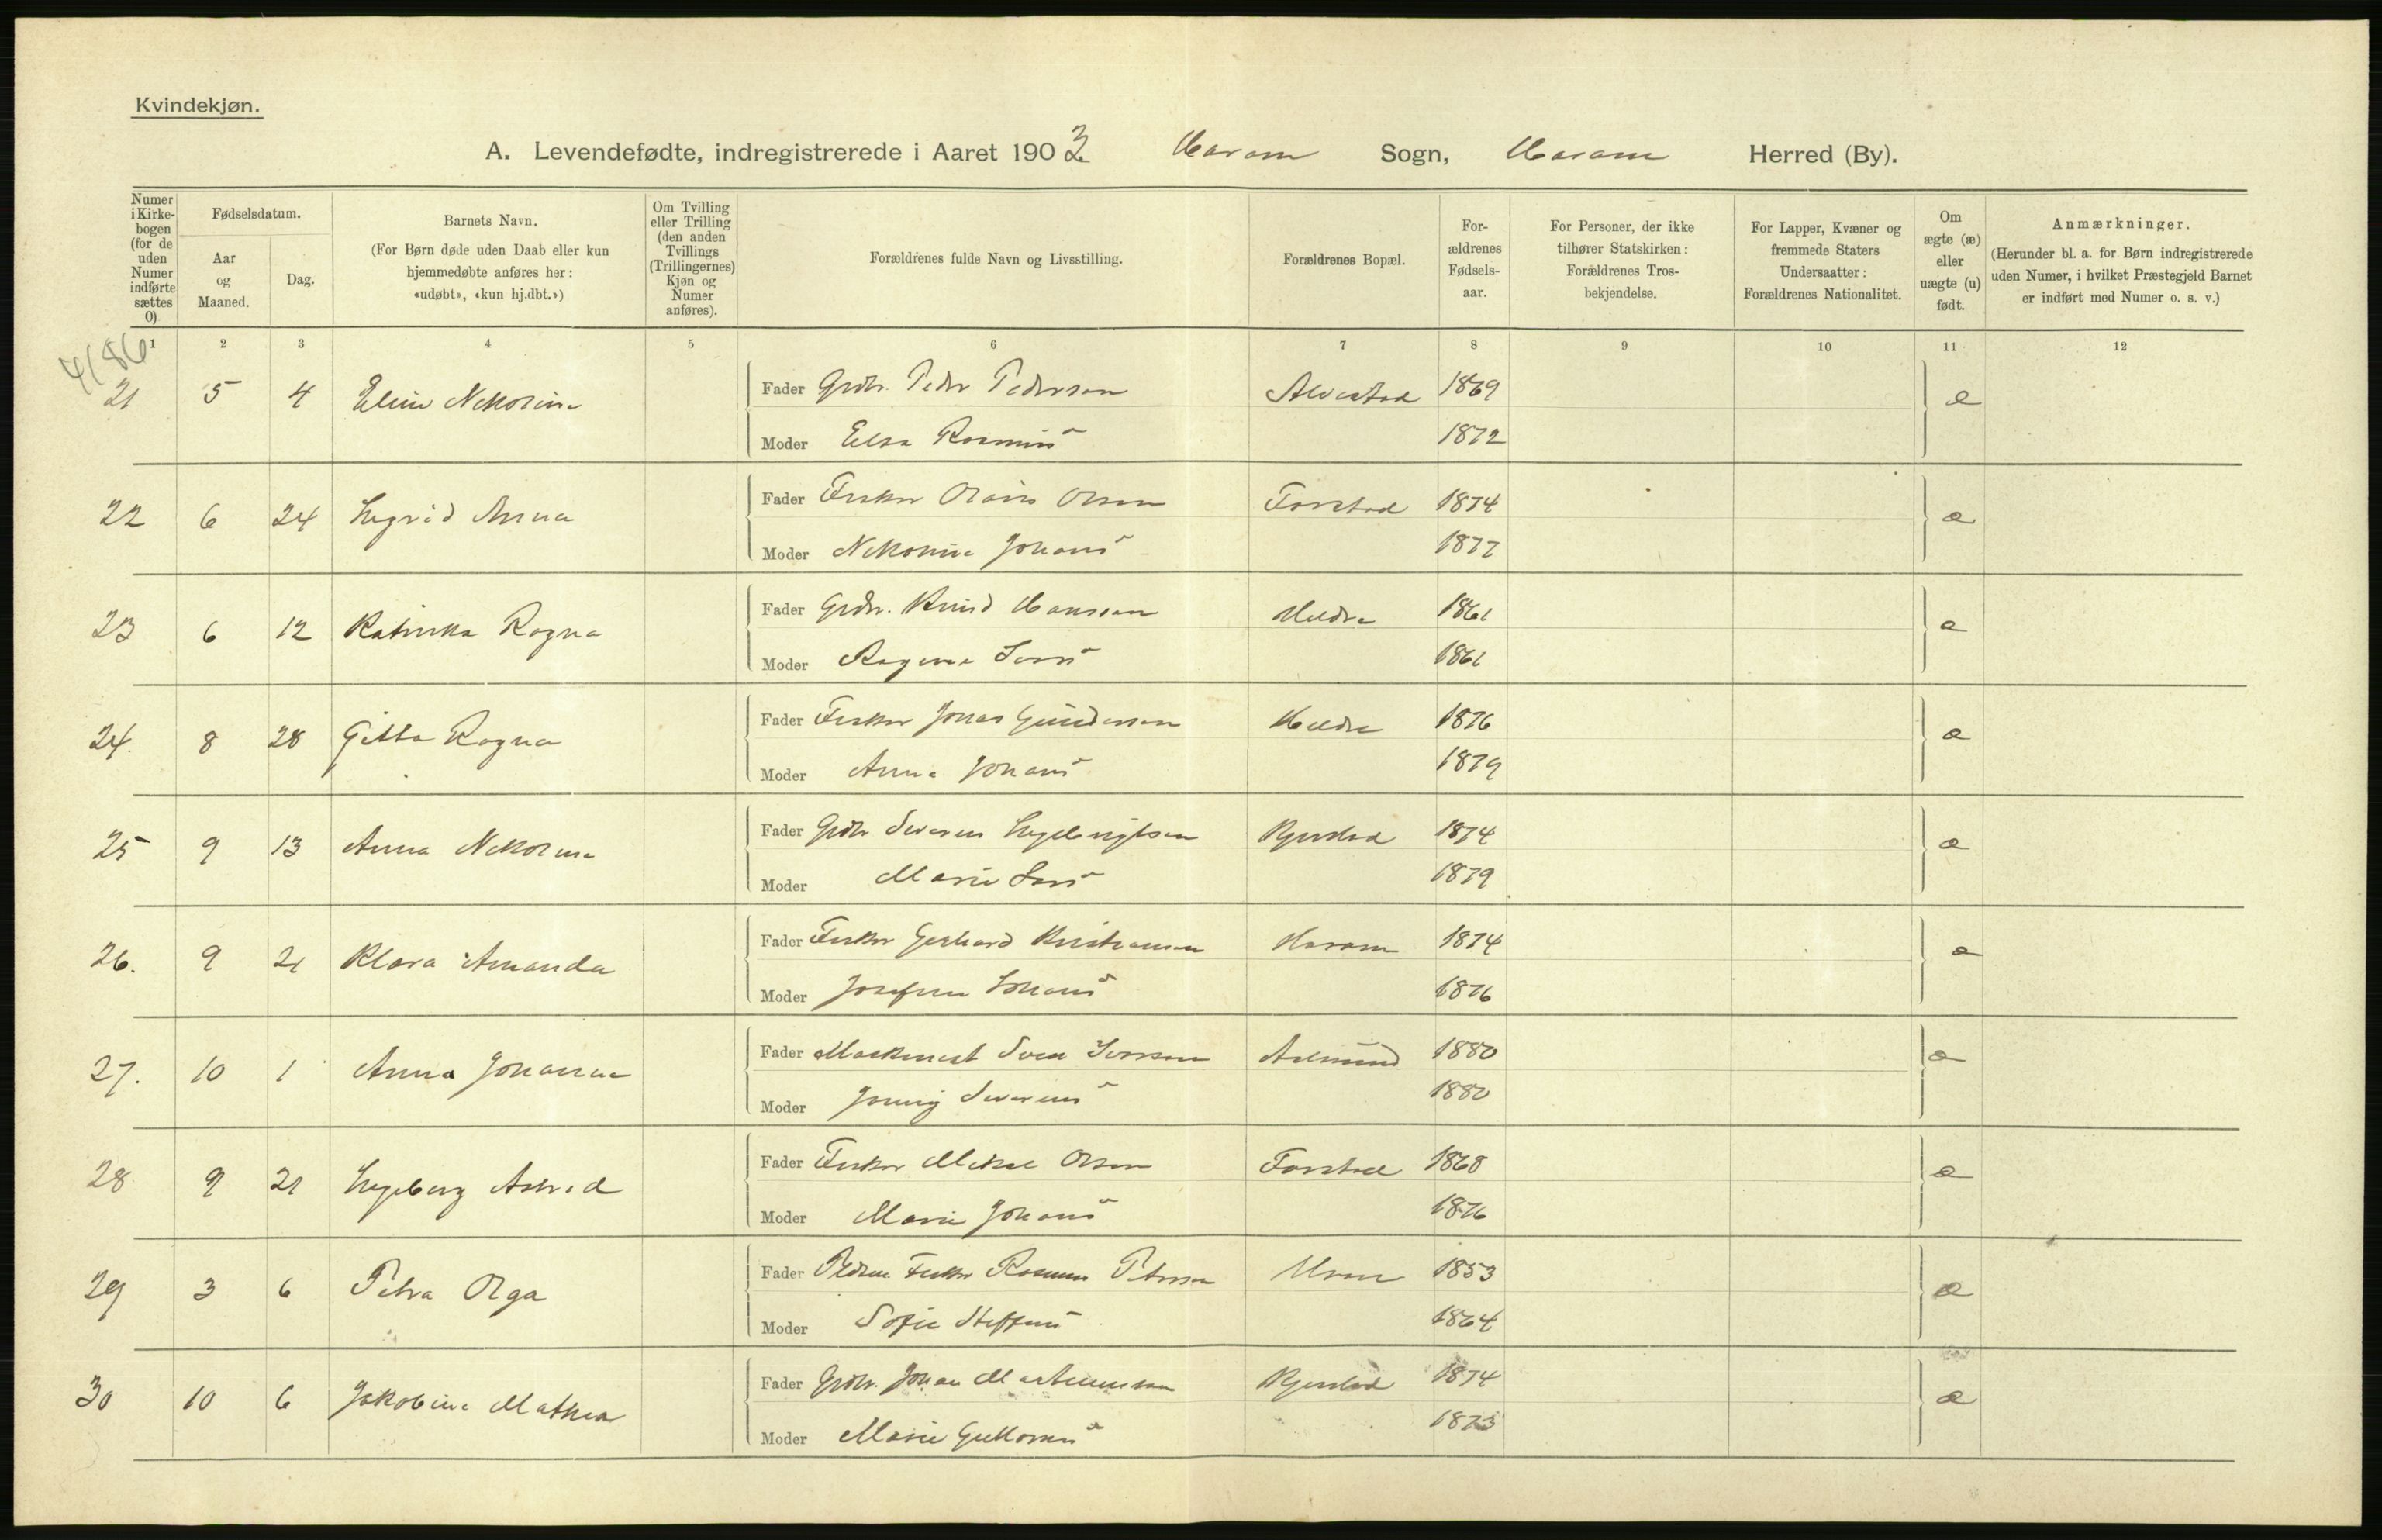 Kvindekjøn.
A. Levendefødte, indregistrerede i Aaret 1903 Haram Sogn, Haram Herred (By).
Numer i Kirkebogen (for de uden Numer indførte sættes 0)
Fødselsdatum.
Aar og Maaned.
Dag.
Barnets Navn.
(For Børn døde uden Daab eller kun hjemmedøbte anføres her: «udøbt», «kun hj.dbt.»)
Om Tvilling eller Trilling (den anden Tvillings (Trillingernes) Kjøn og Numer anføres).
Forældrenes fulde Navn og Livsstilling.
Forældrenes Bopæl.
Forældrenes Fødselsaar.
For Personer, der ikke tilhører Statskirken: Forældrenes Trosbekjendelse.
For Lapper, Kvæner og fremmede Staters Undersaatter: Forældrenes Nationalitet.
Om ægte (æ) eller uægte (u) født.
Anmærkninger.
(Herunder bl. a. for Børn indregistrerede uden Numer, i hvilket Præstegjeld Barnet er indført med Numer o. s. v.)
4186
1 2 3 4 5 6 7 8 9 10 11 12
21 5 4 Eline Nikoline Fader Grdbr. Peder Pedersen Alvestad 1869 æ
Moder Elsa Rasmusd 1872
22 6 24 Ingrid Anna Fader Fisker Olaus Olsen Farstad 1874 æ
Moder Nikoline Johansd 1877
23 6 12 Katinka Ragna Fader Grdbr. Knud Hansen Hildre 1861 æ
Moder Ragna Iversd 1861
24. 8 28 Gitta Ragna Fader Fisker Jonas Gundersen Hildre 1876 æ
Moder Anna Johansd 1879
25 9 13 Anna Nikoline Fader Grdbr Severin Ingebrigtsen Kjerstad 1874 æ
Moder Marie Larsd 1879
26. 9 21 Klara Amanda Fader Fisker Gerhard Kristiansen Haram 1874 æ
Moder Josefine Johansd 1876
27. 10 1 Anna Johanna Fader Maskinist Sven Iversen Aakmund 1880 æ
Moder Jenny Severinsd 1880
28 9 21 Ingeborg Astrid Fader Fisker Mikal Olsen Farstad 1868 æ
Moder Marie Johansd 1876
29 3 6 Petra Olga Fader Fisker Rasmus Petersen 1853 æ
Moder Sofie Steffensd 1864
30 10 6 Jakobine Mathea Fader Grdbr. Johan Martinussen Kjerstad 1874 æ
Moder Marie 1873